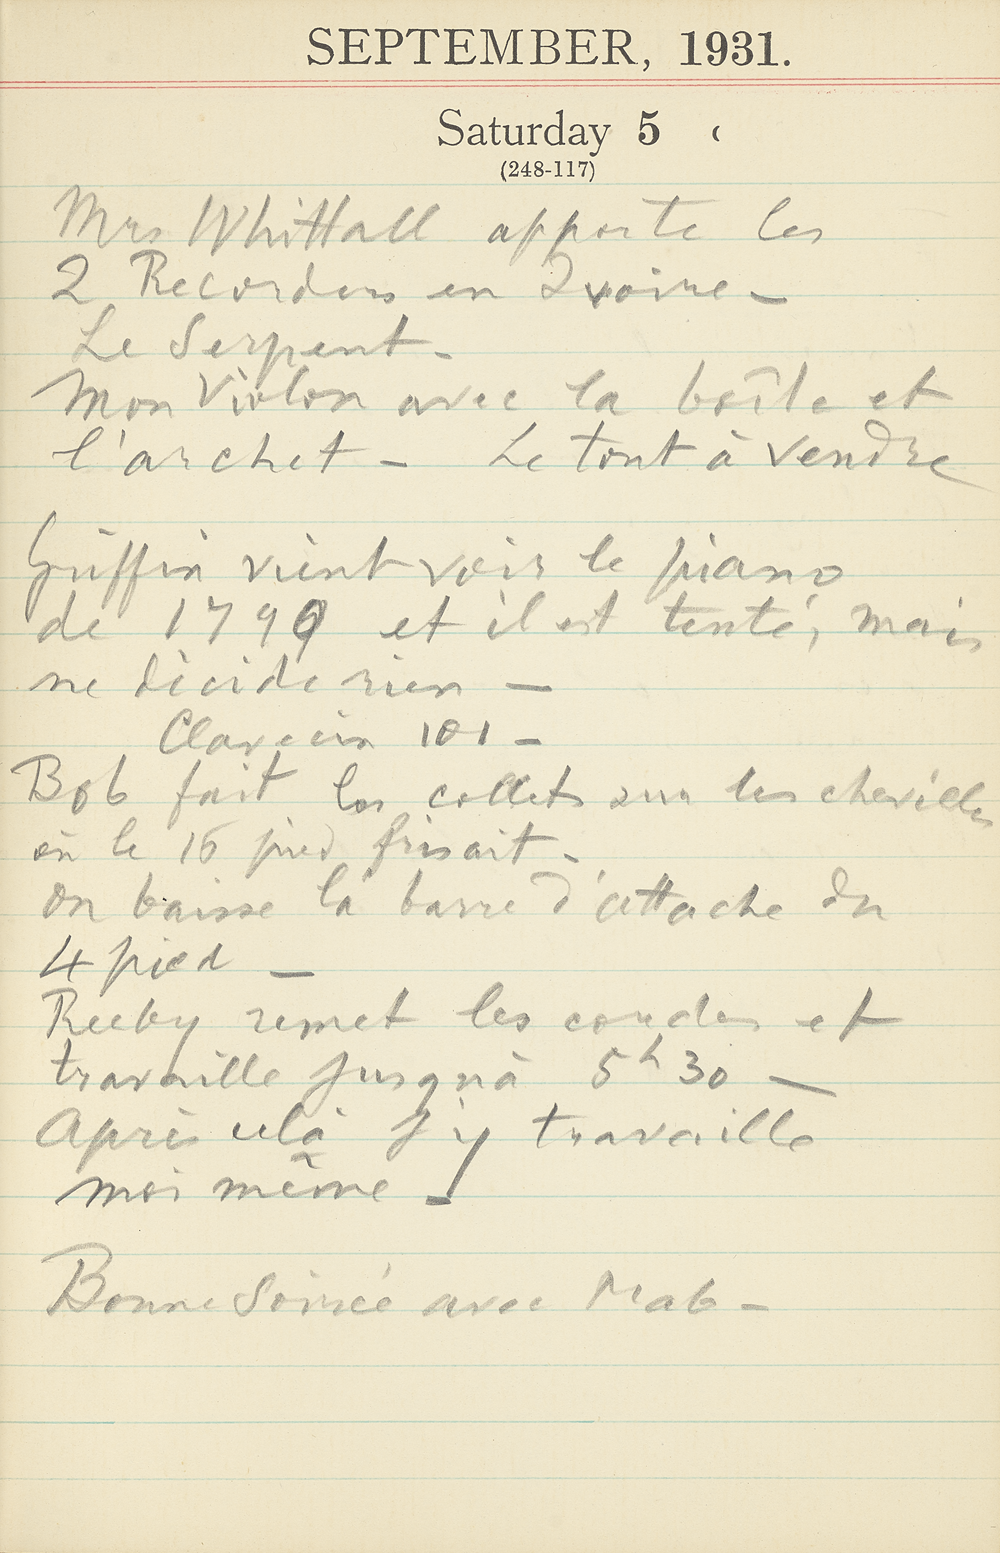 SEPTEMBER, 1931.
Saturday 5
(248-117)
Mrs Whittall apporte les
2 Recorders en Ivoire –
Le Serpent –
Mon Violon avec la boîte et
l'archet – Le tout à vendre
Griffin vient voir le piano
de 1799 et il est tenté, mais
ne décide rien –
Clavecin 101 –
Bob fait les collets sur les chevilles
où le 16 pied frisait –
On baisse la barre d'attache du
4 pied –
Reeby remet les coudes et
travaille jusqu'à 5h 30 –
Après celà j'y travaille
moi même –
Bonne Soirée avec Mab –